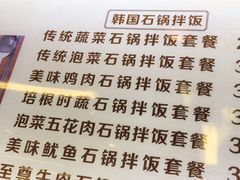 韩国石锅拌饭
传统蔬菜石锅拌饭套餐
传统泡菜石锅拌饭套餐
美味鸡肉石锅拌饭套餐
培根时蔬石锅拌饭套餐
泡菜五花肉石锅拌饭套餐
美味鱿鱼石锅拌饭套餐
至尊牛肉石锅拌饭套餐